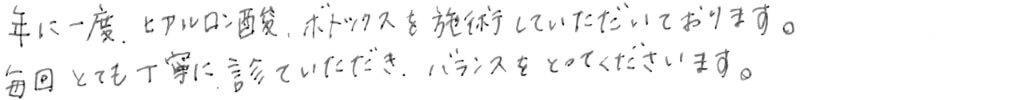 年に一度、ヒアルロン酸、ボトックスを施術していただいております。
毎回とても丁寧に診ていただき、バランスをとってくださいます。